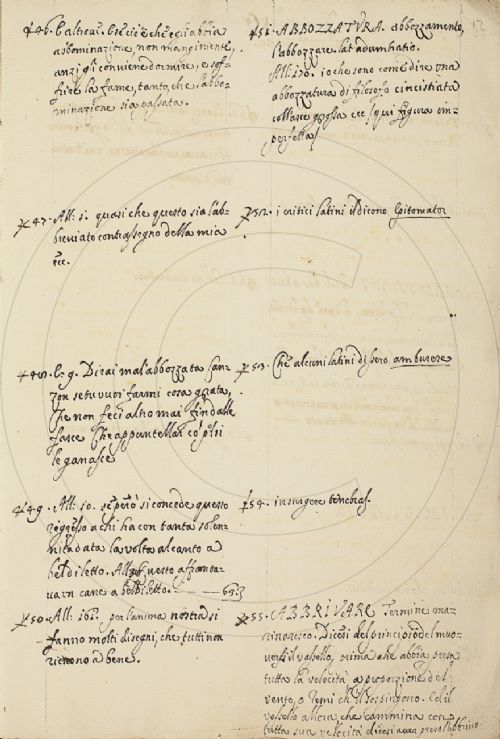 12
46. Galateo.
abbominazione, non mangi niente,
anzi gli conviene dormire, e sof-
frire la fame, tanto, che l'abbo-
minazione sia passata.
47. All: 1. quasi che questo sia l'ab-
breviato contrassegno della mia
ecc.
48. E. g. Dirai mal'abbozzata can-
zon se tu vuoi farmi cosa grata,
Che non feci altro mai fin dalle
fasce Che appuntellar
le ganasce
49. All: 10. se però si concede questo
a chi ha con tanta solen-
nità data la volta al canto a
bel diletto. All:
un cane a bel diletto.
50. All: 161. per l'anima nostra si
fanno molti disegni, che tutti non
riescono a bene.
51. ABBOZZATURA. abbozzamento,
l'abbozzare. lat. adumbratio.
All: 170. io che sono come dire una
abbozzatura di filosofo
colla ecc. qui figura im-
perfetta
52. i critici latini il dicono Epitomator
53. Che alcuni latini dissero amburere
54. insurgere tenebras.
55. ABBRIVARE Termine ma-
rinaresco. Dicesi del principio del muo-
versi il vascello, prima che abbia presa
tutta la velocità a proporzione del
vento, o remi che il sospingono. Ed il
vascello allora che cammina con
tutta sua velocità dicesi aver preso l'abbrivo.